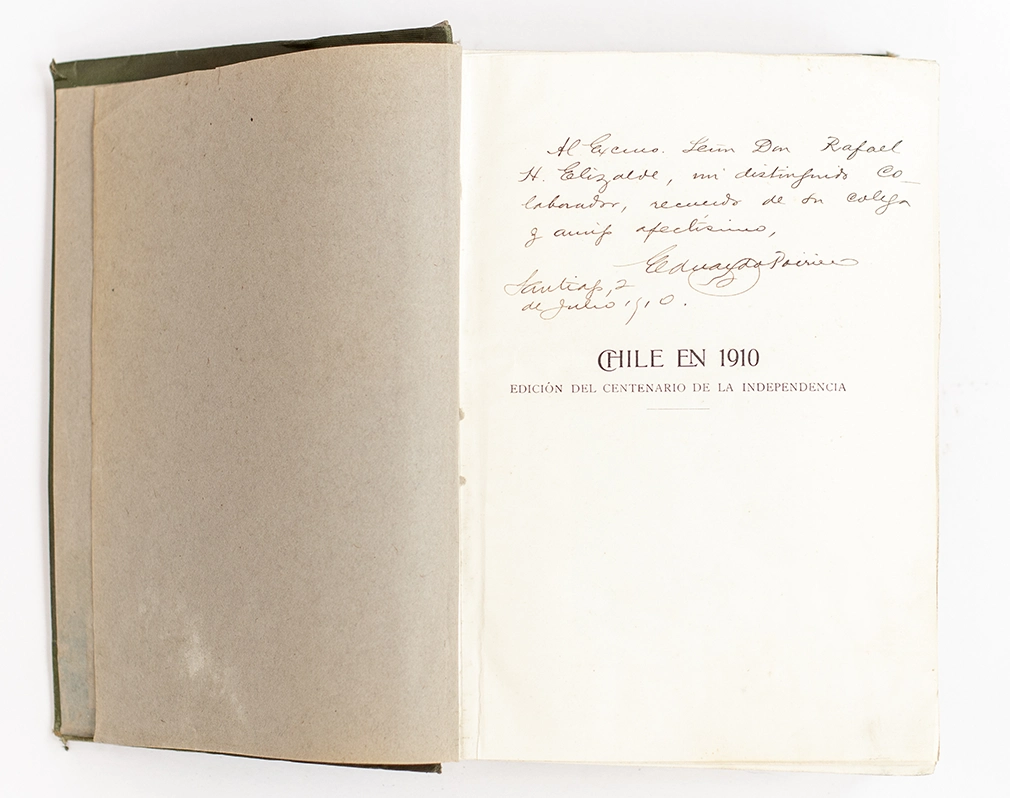 Al Excmo. Señor Don Rafael
H. Elizalde, mi distinguido Co-
laborador, recuerdo de su colega
y amigo afectísimo,
Eduardo Poirier
Santiago, 2
de Julio 1910.
CHILE EN 1910
EDICIÓN DEL CENTENARIO DE LA INDEPENDENCIA